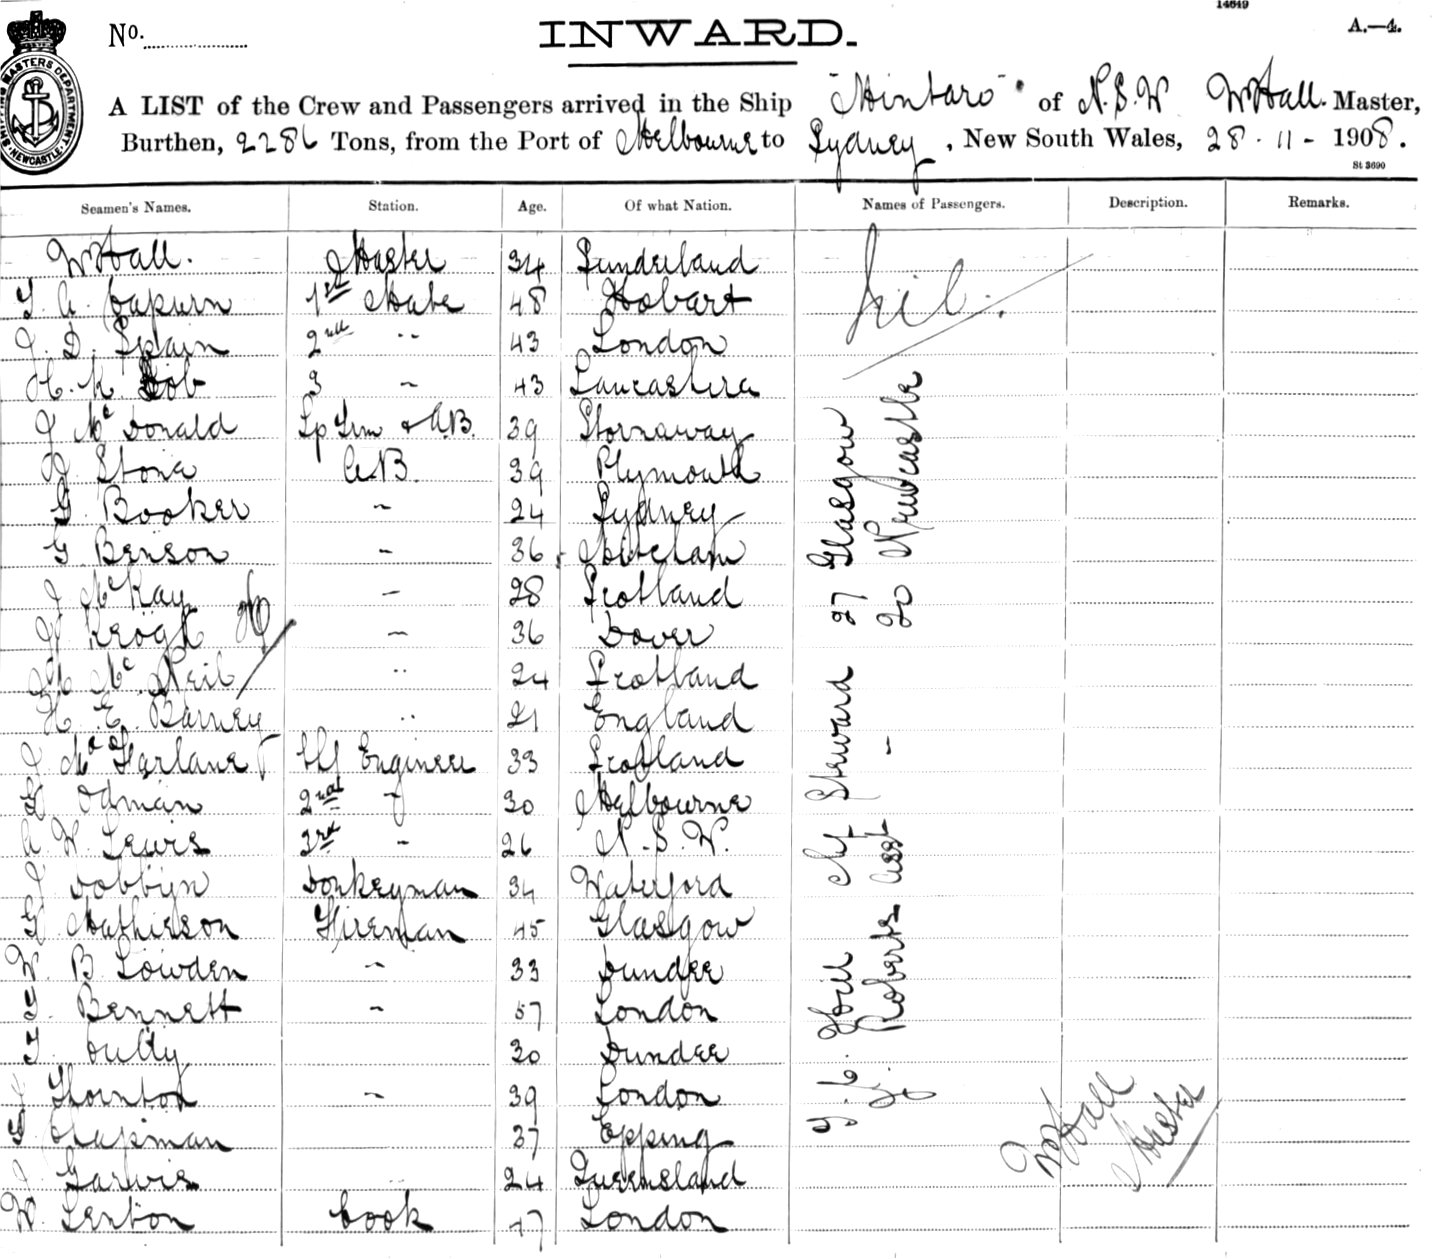 14649
No. INWARD. A.—4.
A LIST of the Crew and Passengers arrived in the Ship "Mintaro" of N.S.W W Hall. Master,
Burthen, 2286 Tons, from the Port of Melbourne to Sydney, New South Wales, 28 - 11 - 1908.
St 3690
Seamen's Names. Station. Age. Of what Nation. Names of Passengers. Description. Remarks.
W Hall. Master 34 Sunderland Nil.
T. A. Capurn 1st Mate 48 Hobart
J. D. Spain 2nd " 43 London
H. K. 3 " 43 Lancashire
J McDonald Lp Trm & A.B. 39 Stornaway
Stone A.B. 39 Plymouth
G. Booker " 24 Sydney
G. Benson " 36 Mitcham
J McKay " 28 Scotland
Krogh " 36 Dover
McNeil " 24 Scotland
H. E. Barney " 21 England
J McFarlane Chf Engineer 33 Scotland
Odman 2nd " 30 Melbourne
A W. Lewis 3rd " 26 N.S.W.
J Dobbyn Donkeyman 34 Waterford
G Mathieson Fireman 45 Glasgow
W. B Lowden " 33 Dundee
T. Bennett " 57 London
T. Duffy 30 Dundee
J Thornton " 39 London
Chapman 37 Epping
J Garwis " 24 Queensland
W. Lenton Cook 47 London
Chf Steward 27 Glasgow
Roberts Asst " 20 Newcastle
W Hall
Master
MASTERS DEPARTMENT
NEWCASTLE